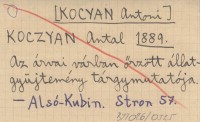 [KOCYAN Antoni]
KOCZYAN Antal 1889.
Az árvai várban őrzött állat-
gyüjtemény tárgymutatója.
– Alsó-Kubin. Stron 57.